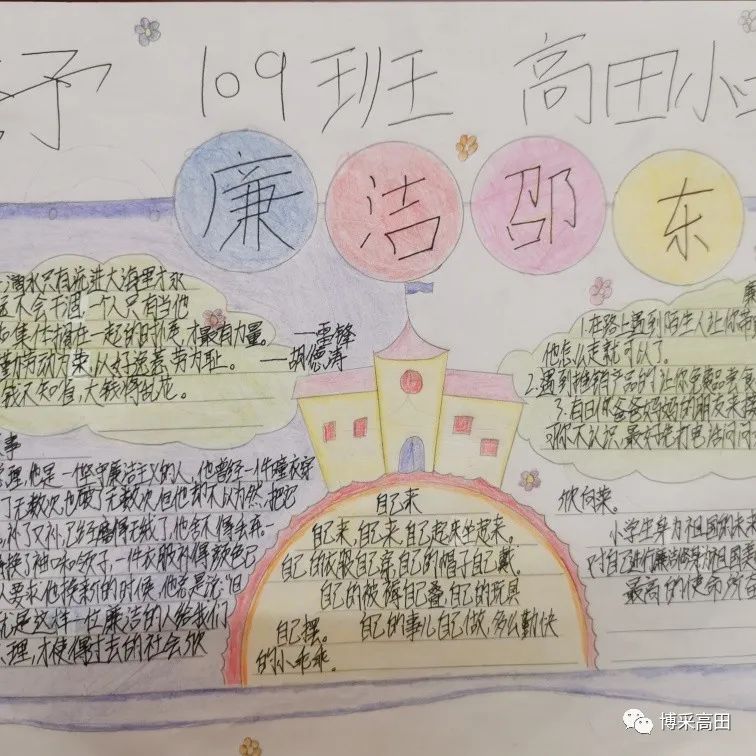 予 109班 高田小
廉洁邵东
滴水只有流进大海里才永
远不会干涸,一个人只有当他
集体拥在一起的时候,才最有力量。 —雷锋
劳动为荣,以好逸恶劳为耻。 —胡德涛
钱不知自,大钱得乱花。
事
总理,他是一位坚守廉洁主义的人,他曾经一件睡衣穿
了无数次,也硬了无数次,但他却不以为然,把它
补了又补,已经磨得无绒了,他舍不得丢弃.一
换了袖口和领子,一件衣服补得颜色已
人要求他换新的时候,他总是说:"但
就是这样一位廉洁的人给我们
理,才使偶过去的社会欣
自己来
自己来,自己来,自己起床坐起来。
自己的衣服自己穿,自己的帽子自己戴。
自己的被褥自己叠,自己的玩具
自己摆。 自己的事儿自己做,多么勤快
的小乖乖。
1.在路上遇到陌生人让你带
他怎么走就可以了。
2.遇到推销产品的让你免费品尝食
3.有自称爸爸妈妈的朋友来
你不认识,最好先打电话问问
欣向荣。
小学生身为祖国的未来
对自己进行廉洁修身为祖国
最高的使命
博采高田